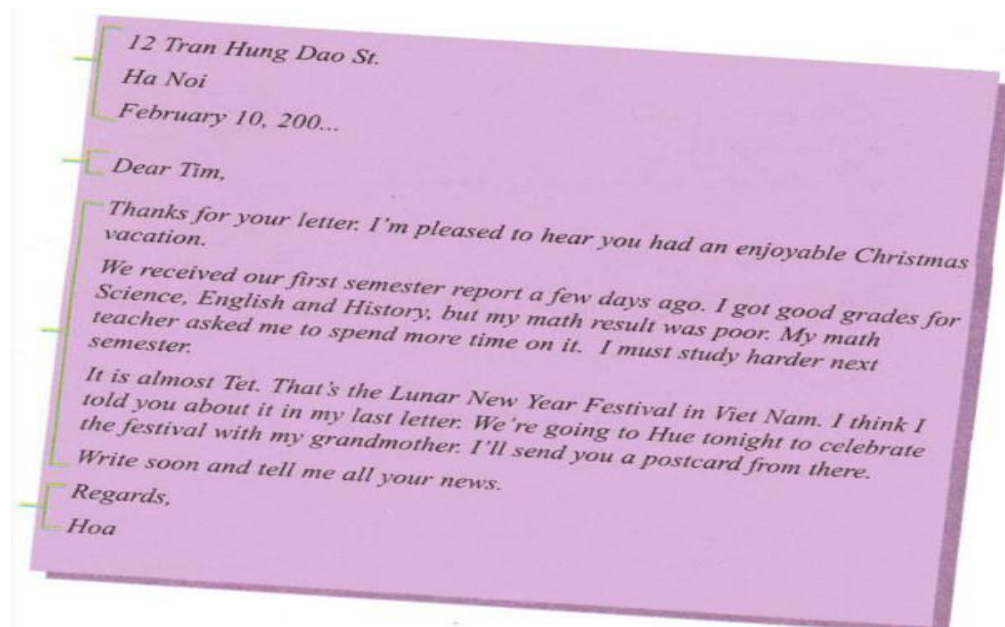 12 Tran Hung Dao St.
Ha Noi
February 10, 200...
Dear Tim,
Thanks for your letter. I'm pleased to hear you had an enjoyable Christmas
vacation.
We received our first semester report a few days ago. I got good grades for
Science, English and History, but my math result was poor. My math
teacher asked me to spend more time on it. I must study harder next
semester.
It is almost Tet. That's the Lunar New Year Festival in Viet Nam. I think I
told you about it in my last letter. We're going to Hue tonight to celebrate
the festival with my grandmother. I'll send you a postcard from there.
Write soon and tell me all your news.
Regards,
Hoa